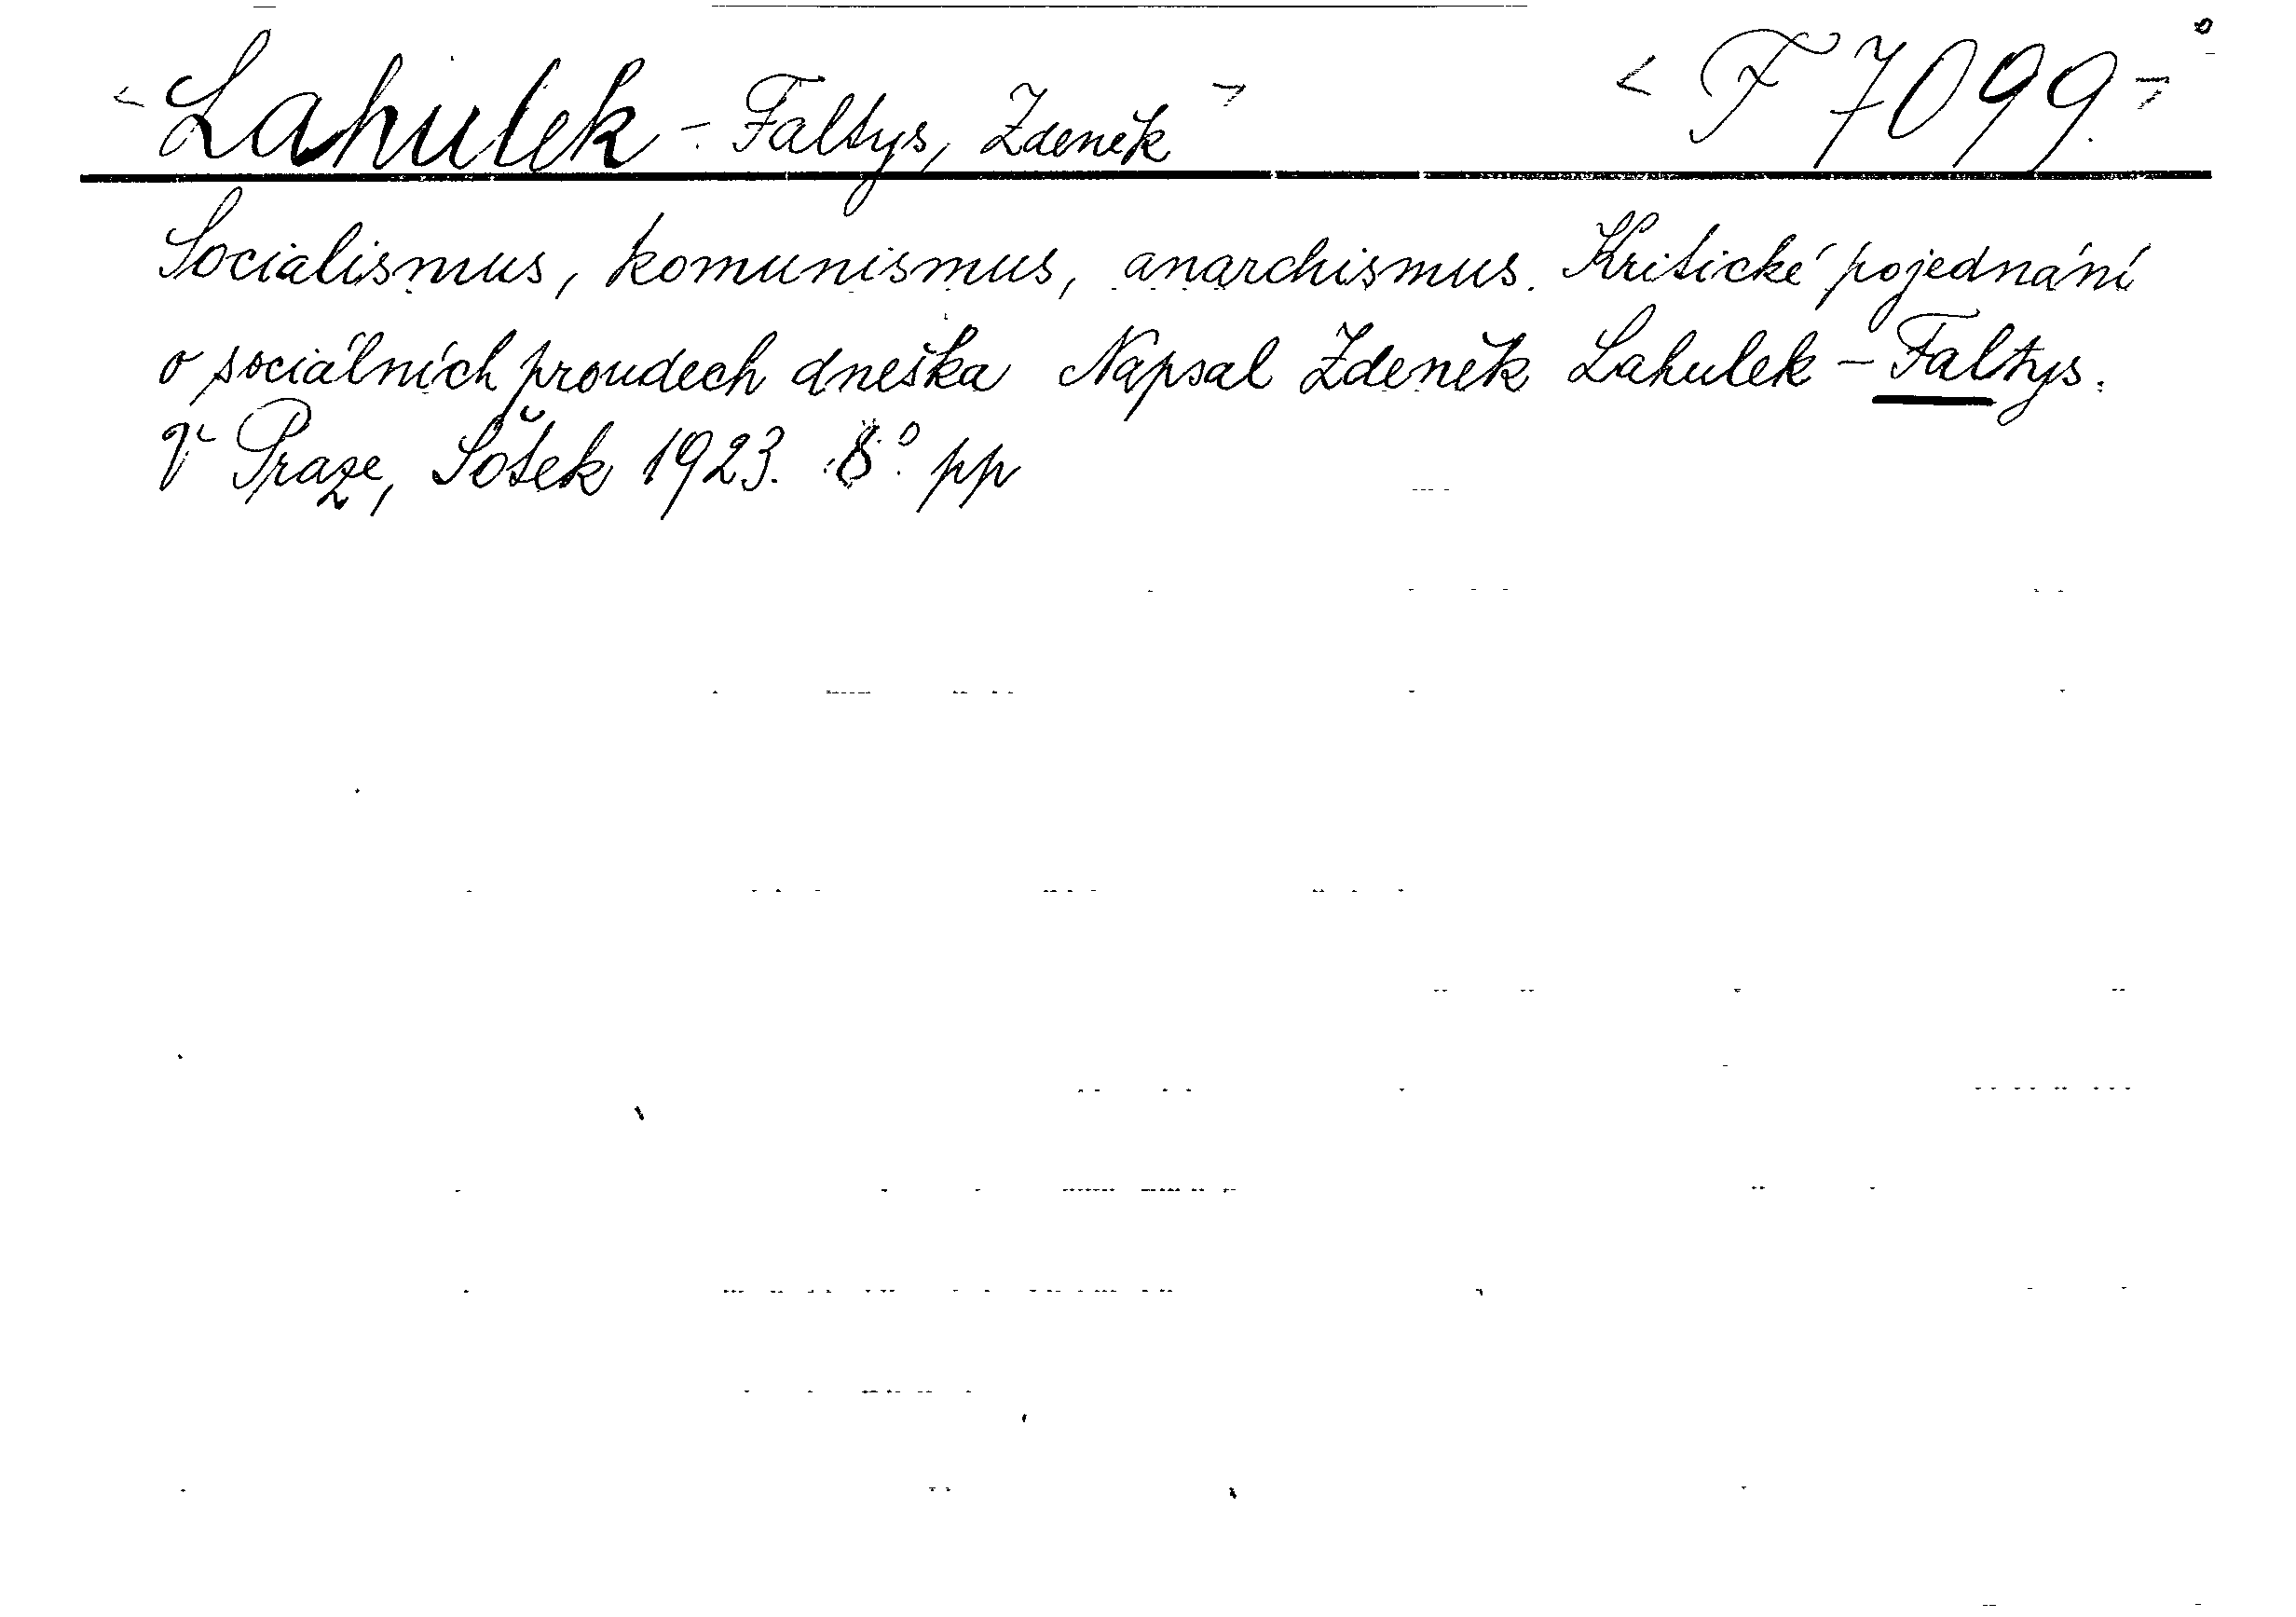 <Lahulek - Faltys, Zdeněk> <F 7099.>
Socialismus, komunismus, anarchismus. Kritické pojednání
o sociálních proudech dneška Napsal Zdeněk Lahulek - Faltys.
V Praze, Šotek 1923. 8°. pp